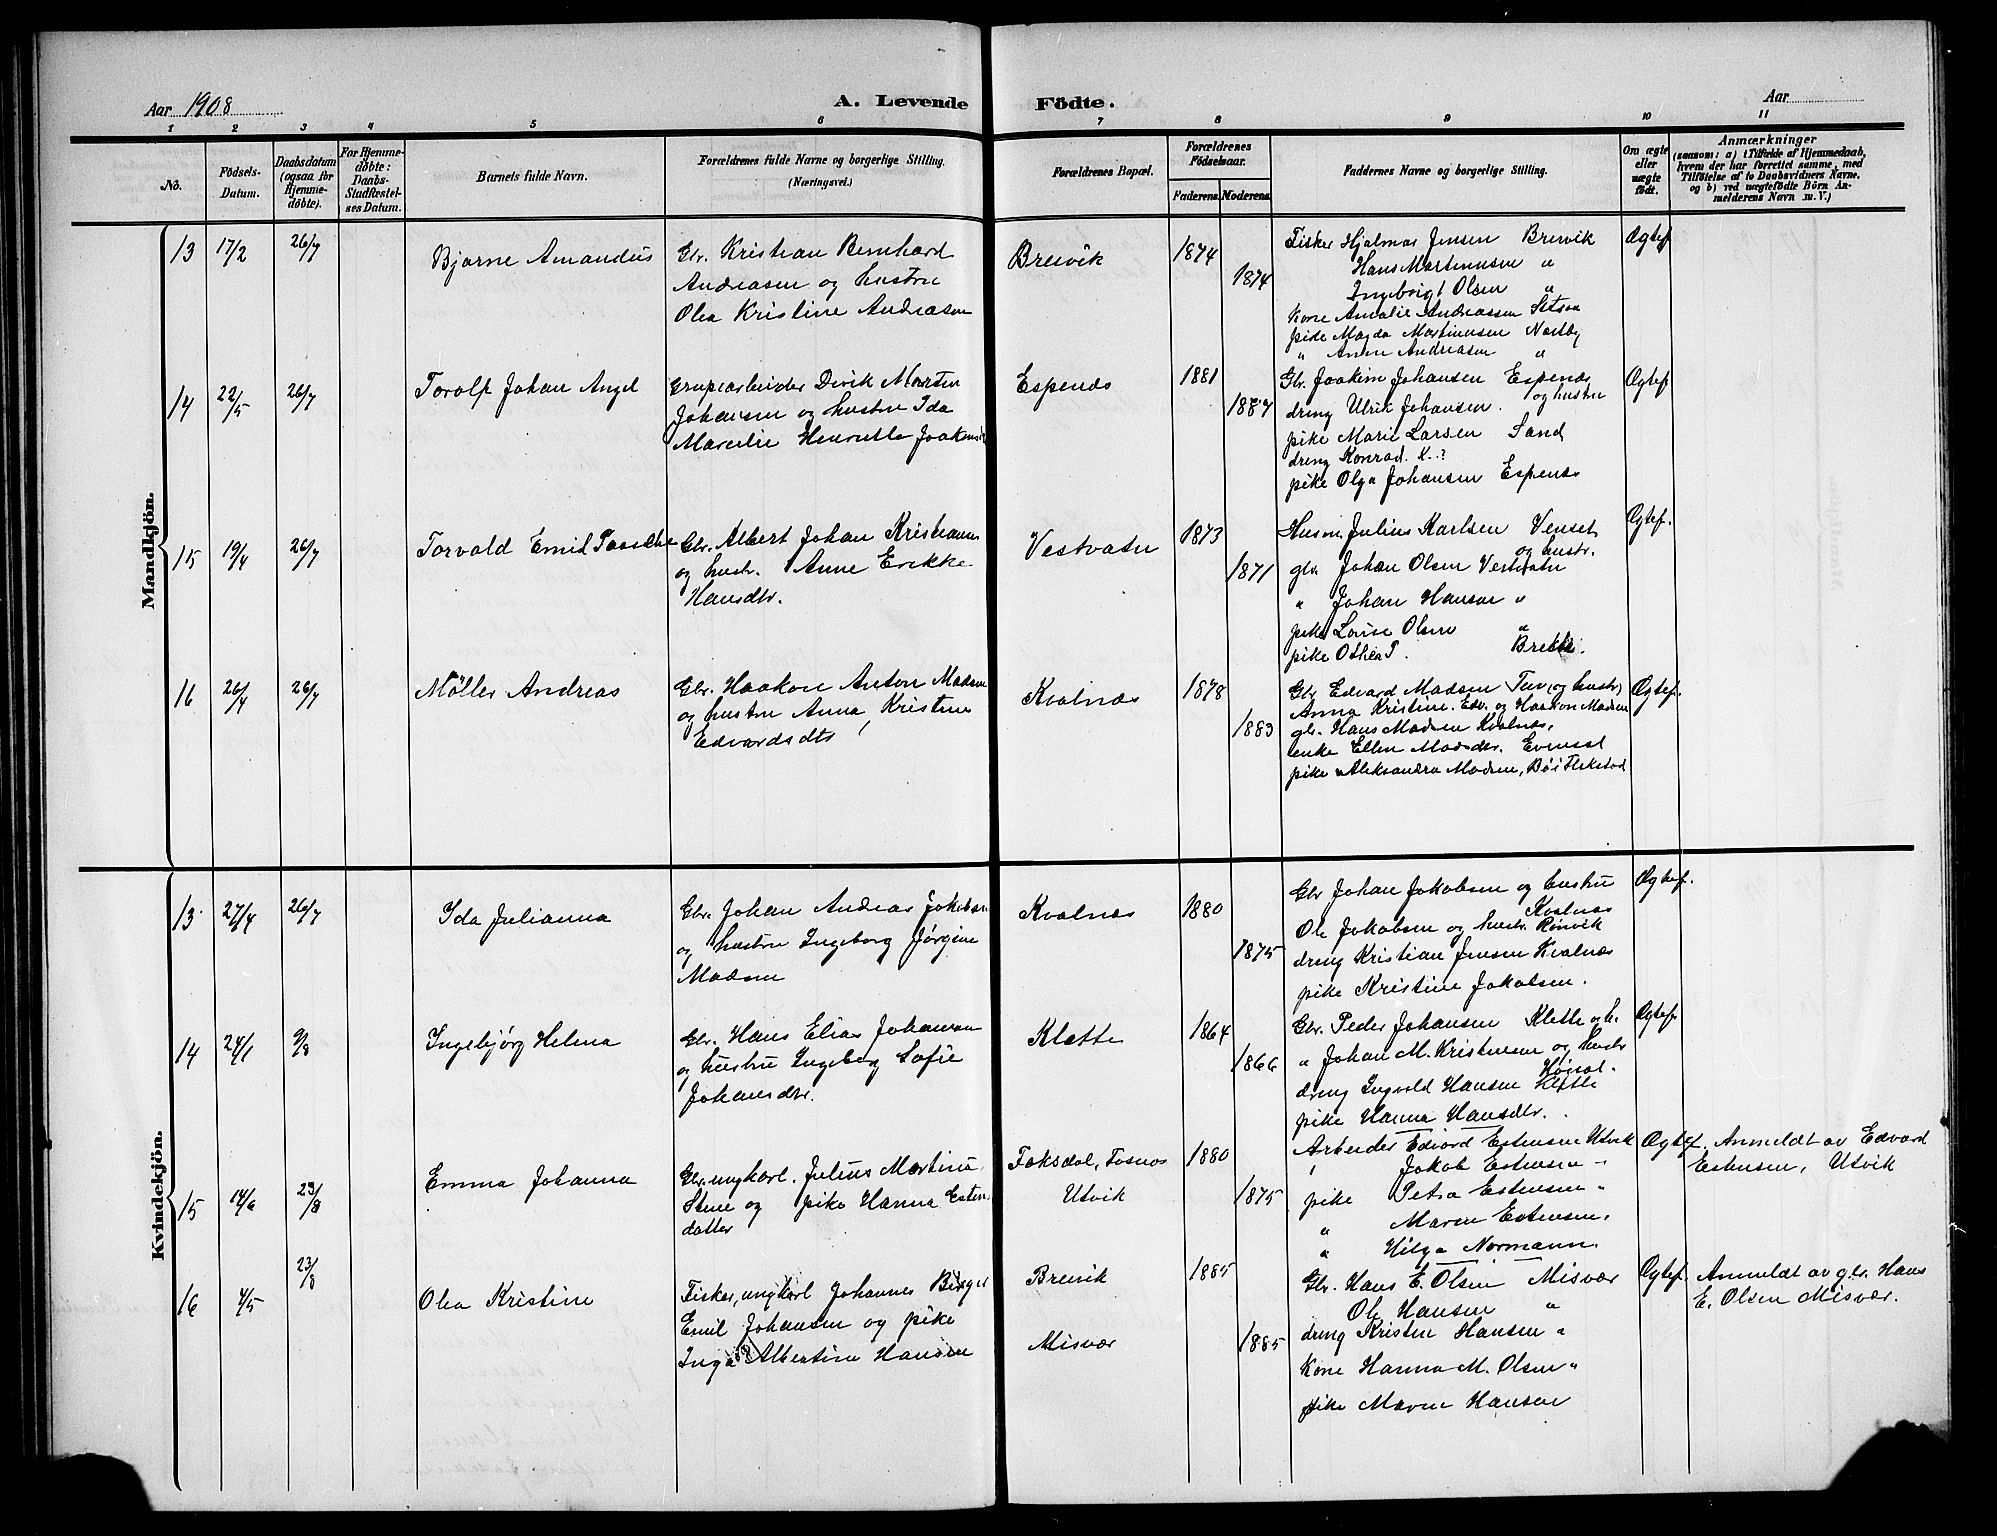 Aar 1908
A. Levende Födte.
Aar
1 2 3 4 5 6 7 8 9 10 11
No.
Födsels-Datum.
Daabsdatum (ogsaa for Hjemmedöbte).
For Hjemmedöbte: Daabs-Stadfæstelses Datum.
Barnets fulde Navn.
Forældrenes fulde Navne og borgerlige Stilling. (Næringsvei.)
Forældrenes Bopæl.
Forældrenes Födselsaar.
Faderens. Moderens.
Faddernes Navne og borgerlige Stilling.
Om ægte eller uægte födt.
Anmærkninger
(saasom: a) i Tilfælde af Hjemmedaab, hvem der har forrettet samme, med Tilföielse af to Daabsvidners Navne, og b) ved uægtefödte Börn Anmelderens Navn m. V.)
Mandkjön.
13 17/2 26/7 Bjarne Amandus
Gbr. Kristian Bernhard
Andreasen og hustru
Olea Kristine Andreasen
Breivik 1874 1874
Fisker Hjalmar Jensen Breivik
Hans Martinussen "
Ingebrigt Olsen "
Kone Amalie Andreassen
pike Magda Martinussen
" Anne Andreasen "
Ægtef.
14 22/5 26/7 Torolf Johan Angel
Grupearbeider Divik Morten
Johansen og hustru Ida
Marcelie Henriette
Espenes 1881 1887
Gbr. Joakim Johansen Espenes
og hustru
dreng Ulrik Johansen.
pike Marie Larsen Sand
dreng Konrad. K..?
pike Olga Johansen Espenes
Ægtef.
15 19/4 26/7 Torvald Emil
Gbr. Albert Johan
og hustr. Anne Erikke
Hansdtr.
Vestvatn 1873 1871
Husm. Julius Karlsen Venset
og hustr.
gbr Johan Olsen Vestvatn
" Johan Hansen "
pike Louise Olsen "
pike Othea P. Brekke.
Ægtef.
16 26/4 26/7 Möller Andreas
Gbr. Haakon Anton Madsen
og hustru Anna Kristine
Edvardsdtr
Kvalnæs 1878 1883
Gbr Edvard Madsen Tuv (og hustr)
Anna Kristine. Edv. og Haakon Madsen
gbr. Hans Madsen Kvalnes,
enke Ellen Madsdtr. Evenset
pike Aleksandra Madsen,
Ægtef.
Kvindekjön.
13. 27/4 26/7 Ida Julianna
Gbr. Johan Andreas Jakobsen
og hustru Ingeborg Jørgine
Madsen
Kvalnæs 1880 1875
Gbr Johan Jakobsen og hustru
Kvalnæs
Ole Jakobsen og hustr. Rönvik
dreng Kristian Jensen Kvalnæs
pike Kristine Jakobsen.
Ægtef.
14 24/1 9/8 Ingebjørg Helena
Gbr. Hans Elias Johansen
og hustru Ingeborg Sofie
Johansdtr.
Klætte 1864 1866
Gbr. Peder Johansen Klette og h.
" Johan M. Kristensen og hustr
dreng Ingvald Hansen Klette
pike Hanna Hansdtr.
Ægtef.
15 14/6 23/8 Emma Johanna
Gbr. ungkarl. Julius Martinu
Stene og pike Hanna Esten
datter
Faksdal, Fosnes
Utvik
1880 1875
Arbeider Edvard Estensen Utvik
Jakob Estensen "
pike Petra Estensen "
" Maren Estensen.
" Helga Normann.
Ægtef.
Anmeldt av Edvard
Estensen, Utvik
16 4/5 23/8 Olea Kristine
Fisker, ungkarl Johannes Birger
Emil Johansen og pike
Inga Albertine Hansen
Breivik
Misvær
1885 1885
Gbr. Hans E. Olsen Misvær
Ole Hansen "
dreng Kristen Hansen "
Kone Hanna M. Olsen "
pike Maren Hansen
Ægtef.
Anmeldt av gbr. Hans
E. Olsen Misvær.